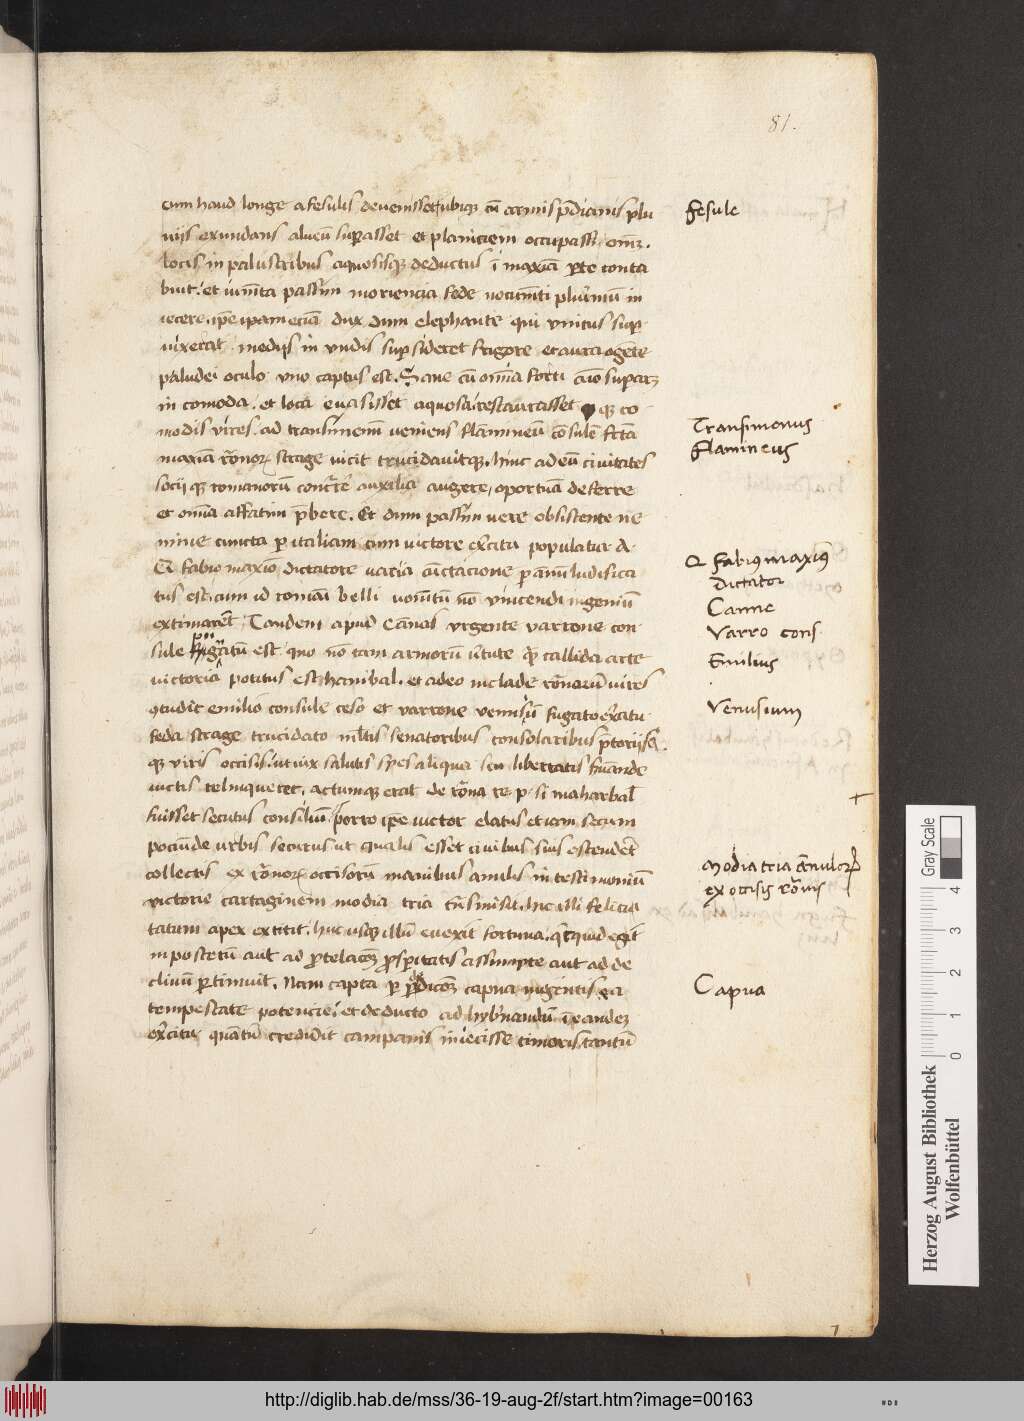 81.
cum haud longe a fesulis devenisset ubiqȝ cū arnus p̄dianis plu
uijs exundans alueū suꝑasset et planiciem occupasset omēȝ.
locis in palustribus aquosisqȝ deductus ī maxīa ꝑte conta
buit. et iumēta passim moriencia fede
iecere. ip̄e ipam eciā dux dum elephante qui vnicus suꝑ
uixerat medijs in vndis suꝑsideret frigore et aura
paludei oculo uno captus est. Sane cū omīa forti aīo suꝑans
in comoda. et loca euasisset aquosa. restaurasset qȝ co
modis vires. ad transimenū veniens flāmineū cōsulē
maxīa romanorꝝ strage vicit trucidauitqȝ. hinc ad eū ciuitates
socij qȝ romanorū auxilia augere, oportuna deferre
et omīa affatim p̄bere. Et dum passim uere obsistente ne
mine cuncta ꝑ italiam cum victore exͬcitu populatur A
Q fabio maxīo dictatore uaria cūctacione ꝑ annū ludifica
tus est. cum id romāi belli non vincendi ingeniū
extimaret. Tandem apud cānas vrgente varrone con
sule pugnatū est quo nō tam armorū uͬtute q̄ callida arte
victoria potitus est hanibal. et adeo in clade romanorū vires
ꝯtudit emilio consule ceso et varrone venusiū fugato exͬcitu
feda strage trucidato mͪltis senatoribus consolaribus p̄torijs
qȝ viris occisis. ut uix salutis spes aliqua seu libertatis
uictis relinqueret. actumqȝ erat de romana re p. si maharbal
fuisset secutus consiliū. porro ip̄e victor elatus etiam secum
pociūde urbis securus ut qualis esset ciuibus suis ostenderet
collectis ex romanorꝝ occisorū manibus anulis in testimoniū
victorie cartaginem modia tria tn̄smisit. hic illi felicita
tatum apex extitit. huc usqȝ illū euexit fortuna. quicquid egit
in posterū aut ad ꝓtelacōeȝ ꝓspͬitatis assumpte aut ad de
cliuū ꝑtinuit. Nam capta ꝑ capua ingentis ea
tempestate potencie. et deducto ad hybͬnandū ī eandeȝ
exͬcitu quātū credidit campanis iniecisse timoris, tantū
Fesule
Transimonus
Flamineus
Q Fabiꝰ maxīꝰ
Dictator
Canne
Varro cons
Emilius
Venusium
Modia tria Annulorꝝ
ex occisis romanis
Capua
Gray Scale
0 1 2 3 4
Herzog August Bibliothek
Wolfenbüttel
http://diglib.hab.de/mss/36-19-aug-2f/start.htm?image=00163